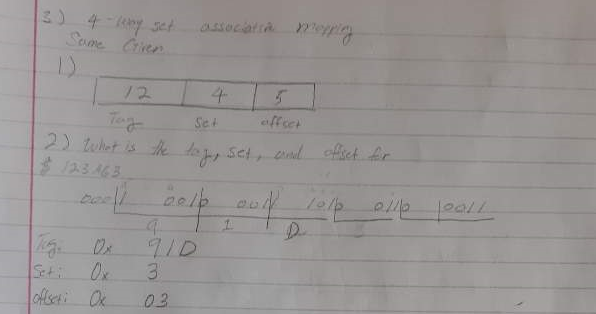 3) 4-way set associative mapping
Same Given
1)
12 4 5
Tag set offset
2) What is the tag, set, and offset for
$ 123A63
0001 0010 0011 1010 0110 0011
9 1 D
Tag: 0x 91D
Set: 0x 3
offset: 0x 03